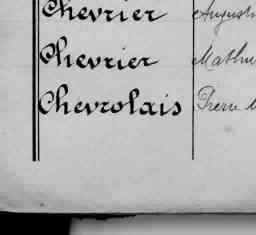 Chevrier Augustin
Chevrier Mathu
Chevrolais Pierre